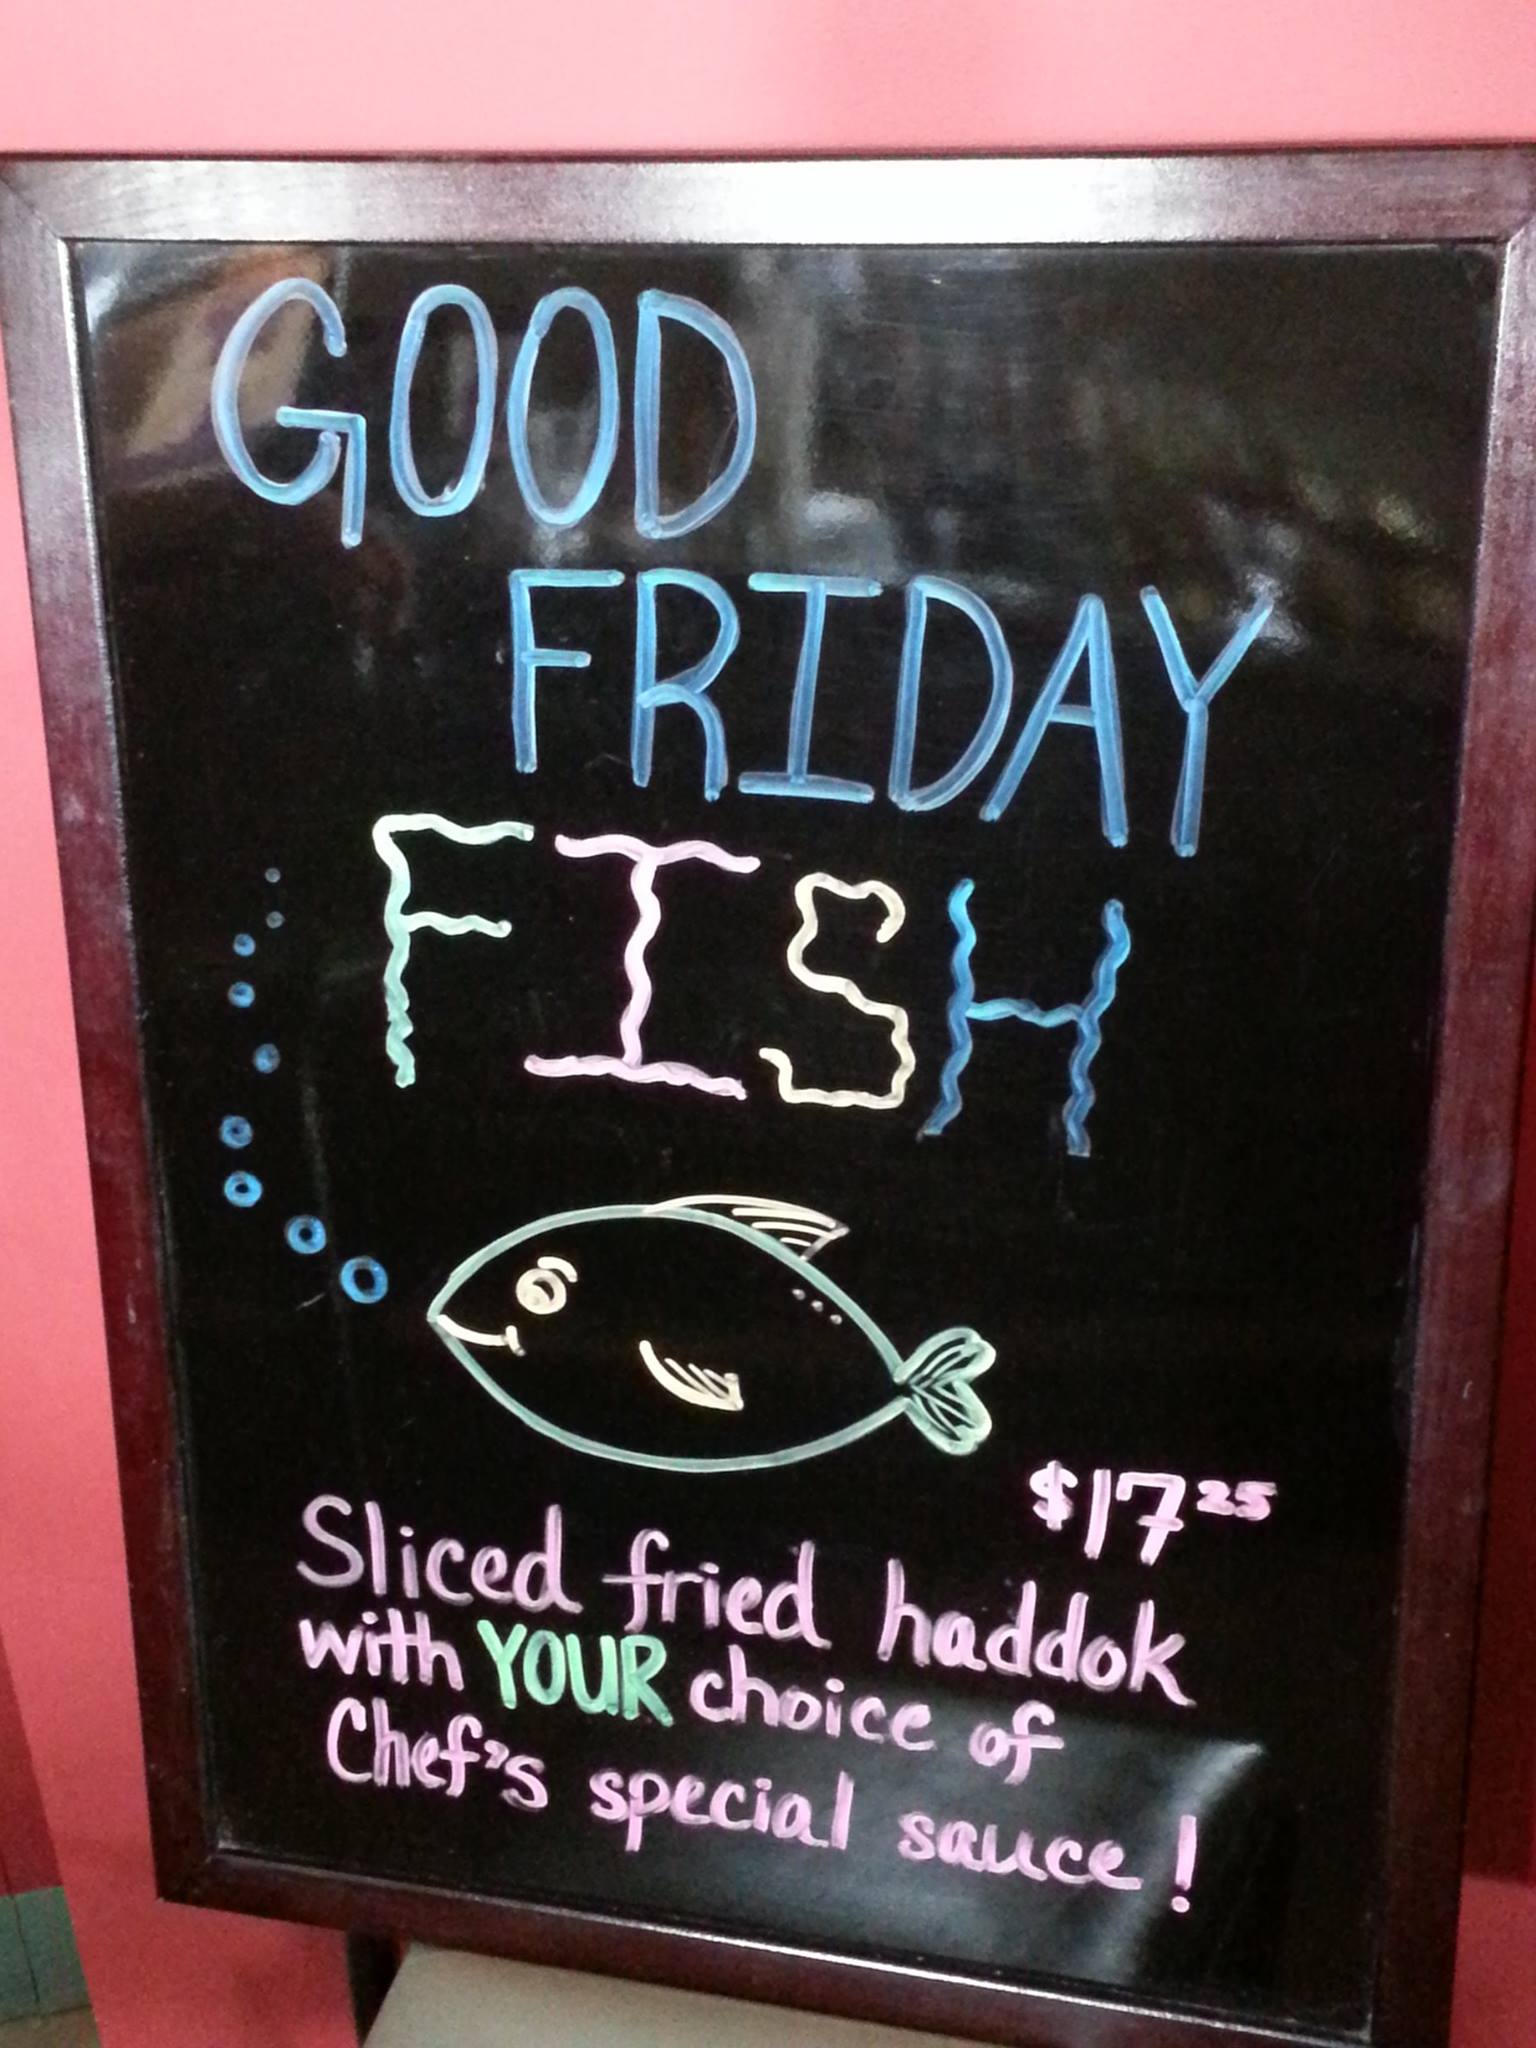 GOOD
FRIDAY
FISH
$17 25
Sliced fried haddok
with YOUR choice of
Chef's special sauce!